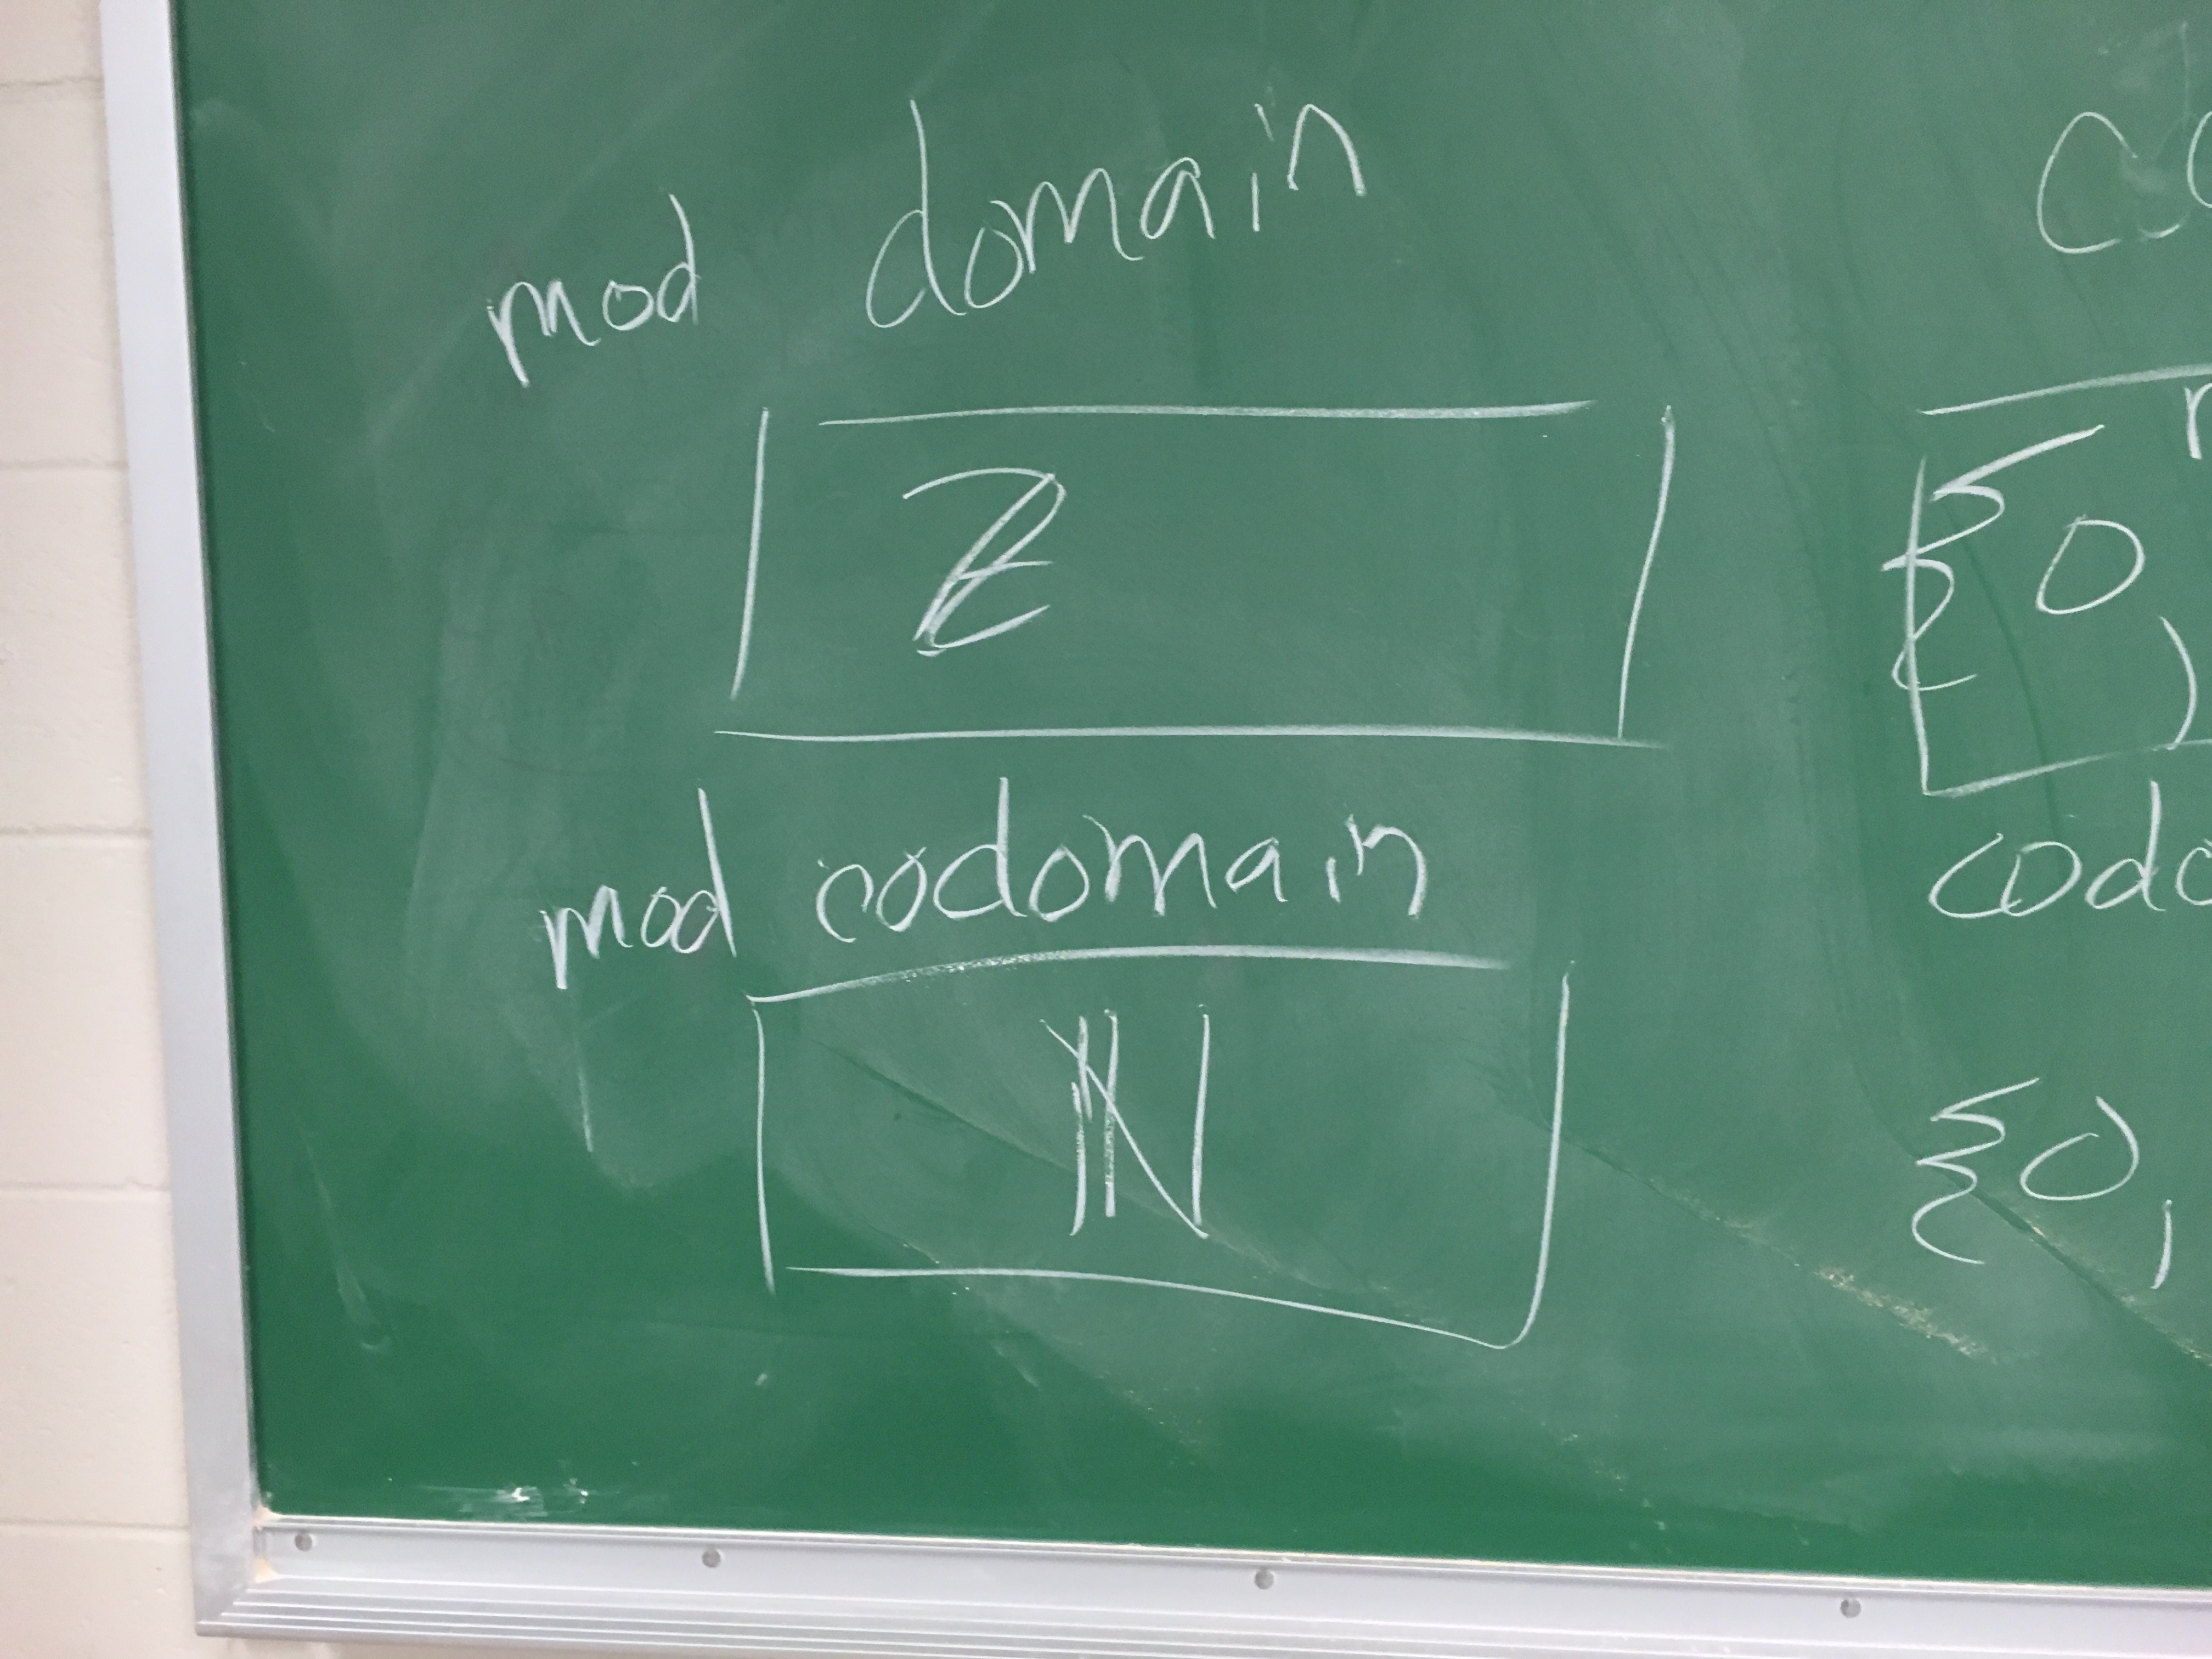 mod domain
ℤ
mod codomain
ℕ
{0,
{0,